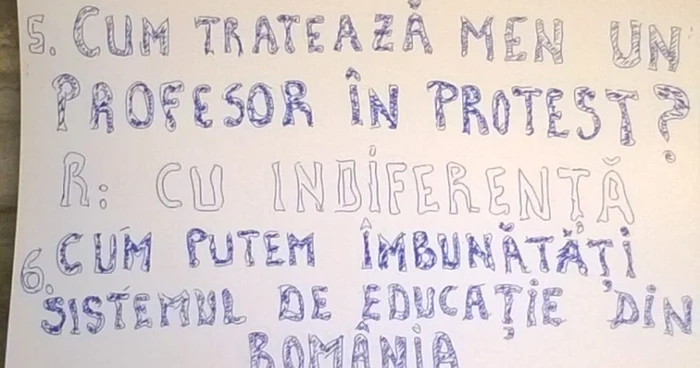 5. CUM TRATEAZĂ MEN UN
PROFESOR ÎN PROTEST?
R: CU INDIFERENȚĂ
6. CUM PUTEM ÎMBUNĂTĂȚI
SISTEMUL DE EDUCAȚIE DIN
ROMÂNIA